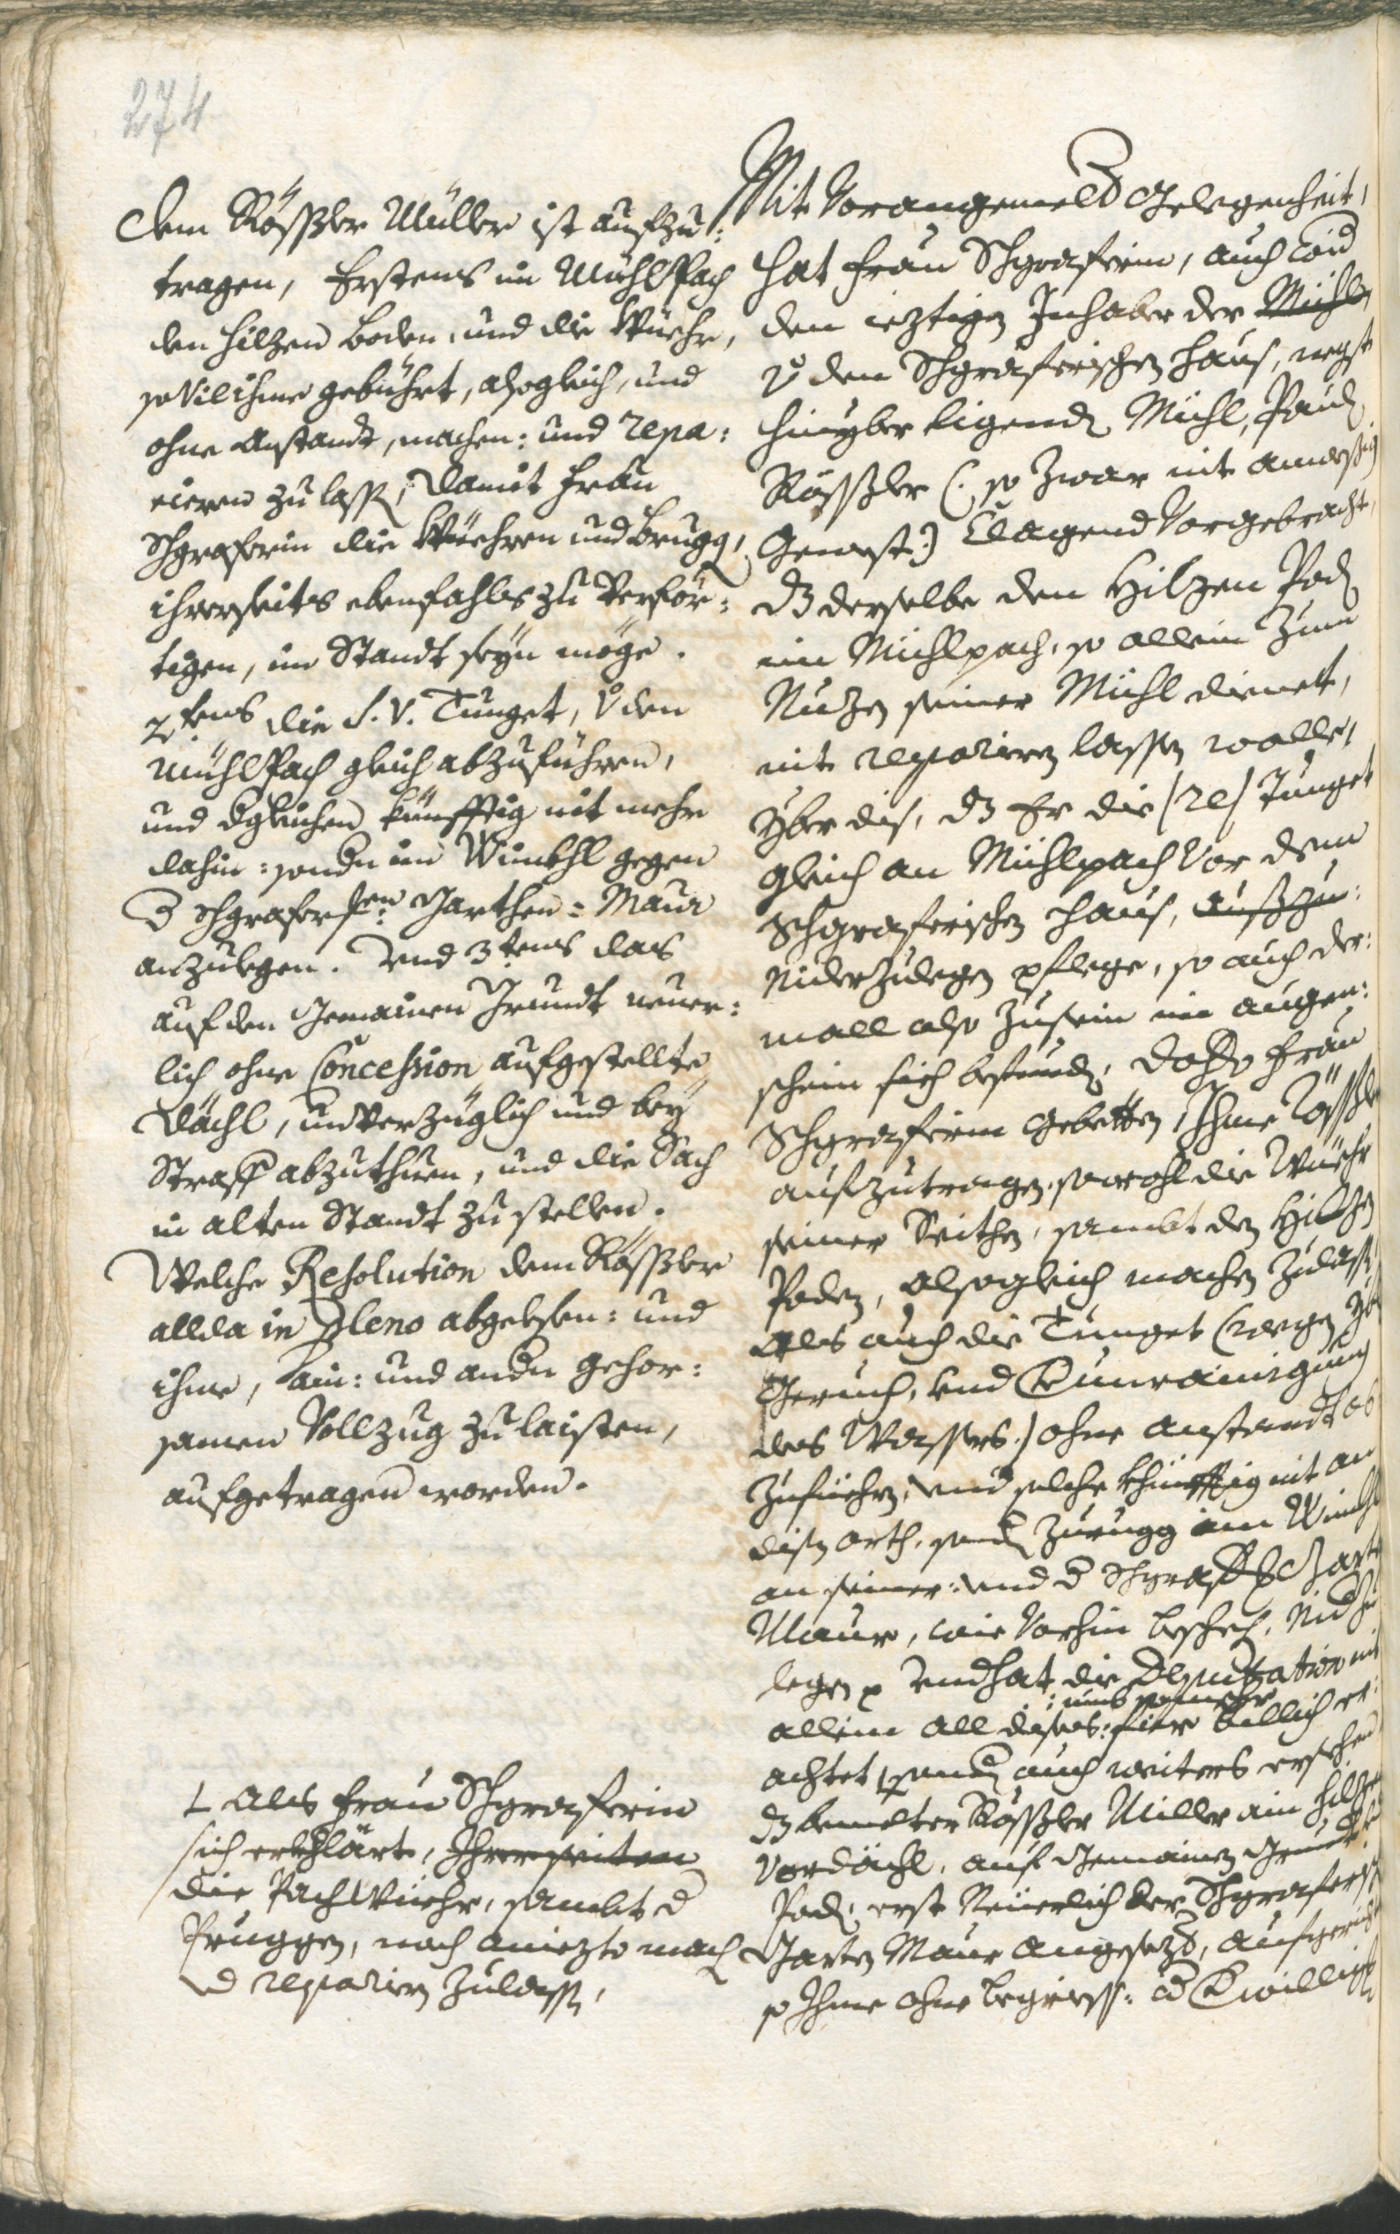 274
Dem Rößler Müller ist aufzu:
tragen, Erstens im Mühlpach
den hilzen Boden, und die Wuehr,
so Vil ihme gebührt, alsogleich, und
ohne Anstandt, machen: und repa:
rieren zu lass, damit Frau
Schgrafferin die Wuehren und Brugg,
ihrerseits ebenfahls zu Verför:
tigen, im Standt seyn möge.
2.tens die S. V. Tunget, v den
Mühlpach gleich abzuführen,
und dgleichen künfftig nit mehr
dahin: sondn im Winkhl gegen
d Schgrafer:en Garthen=Maur
anzulegen. Und 3.tens das
auf den Gemainen Grundt neuer:
lich ohne Concession aufgestellte
Dächl, unverzüglich und bey
Straff abzuthuen, und die Sach
in alten Standt zu stellen.
Welche Resolution dem Rößler
allda in Pleno abgelesen: und
ihme, ain: und andn gehor:
samen Vollzug zu laisten,
aufgetragen worden.
Als Frau Schgrafferin
sich erkhlärt, Ihrerseiten
die Pachwuehr, sambt d
Pruggen, noch aniezto mach
d reparirn zulass,
Mit Vorangemeld Gelegenheit,
hat Frau Schgrafferin, auch wid
den ieztign Inhaber der Mühl,
v den Schgrafferischen Haus, negst
hinyber ligendn Mühl, Paul
Rößler (: so zwar nit anwesig
Gewest:) Clagend Vorgebracht,
dz derselbe den Hilzen Podn
im Mühlpach, so allein zum
Nuzn seiner Mühl dienet,
nit reparirn lassn wolle,
yber dis, dz Er die /re/ Tunget
gleich an Mühlpach Vor dem
Schgrafferischen Haus, auszu:
niderzulegen pflege, so auch der:
mall also zusein im augen:
schein sich befundn, Dahero Frau
Schgrafferin gebetten, Ihme Rößler
aufzutragen, sowohl die Wuehr
seiner Seithn, sambt den Hilzn
Podn, alsogleich machen zulass,
Als auch die Tunget (wegen
Geruch, und Verunrainigung
des Wassers) ohne anstandt ab
zufüehrn, und solche khünfftig nit an
disn orth, sondn zurugg im Winkhl
an seiner: und d Schgraff. Gart
Maur, wie Vorhin beschech, Nid zu
legen p Und hat die Deputation nit
allein all dises: umb so mehr für billich er:
achtet, sondn auch weiters ersehen
dz bemelter Rößler Miller ain hilzen
Vordächl, auf Gemainen Grundt
Podn, erst Neuerlich der Schgraffer:
Garten Maur angesezt, aufgericht
so Ihme ohne begriess: d Bewilligh